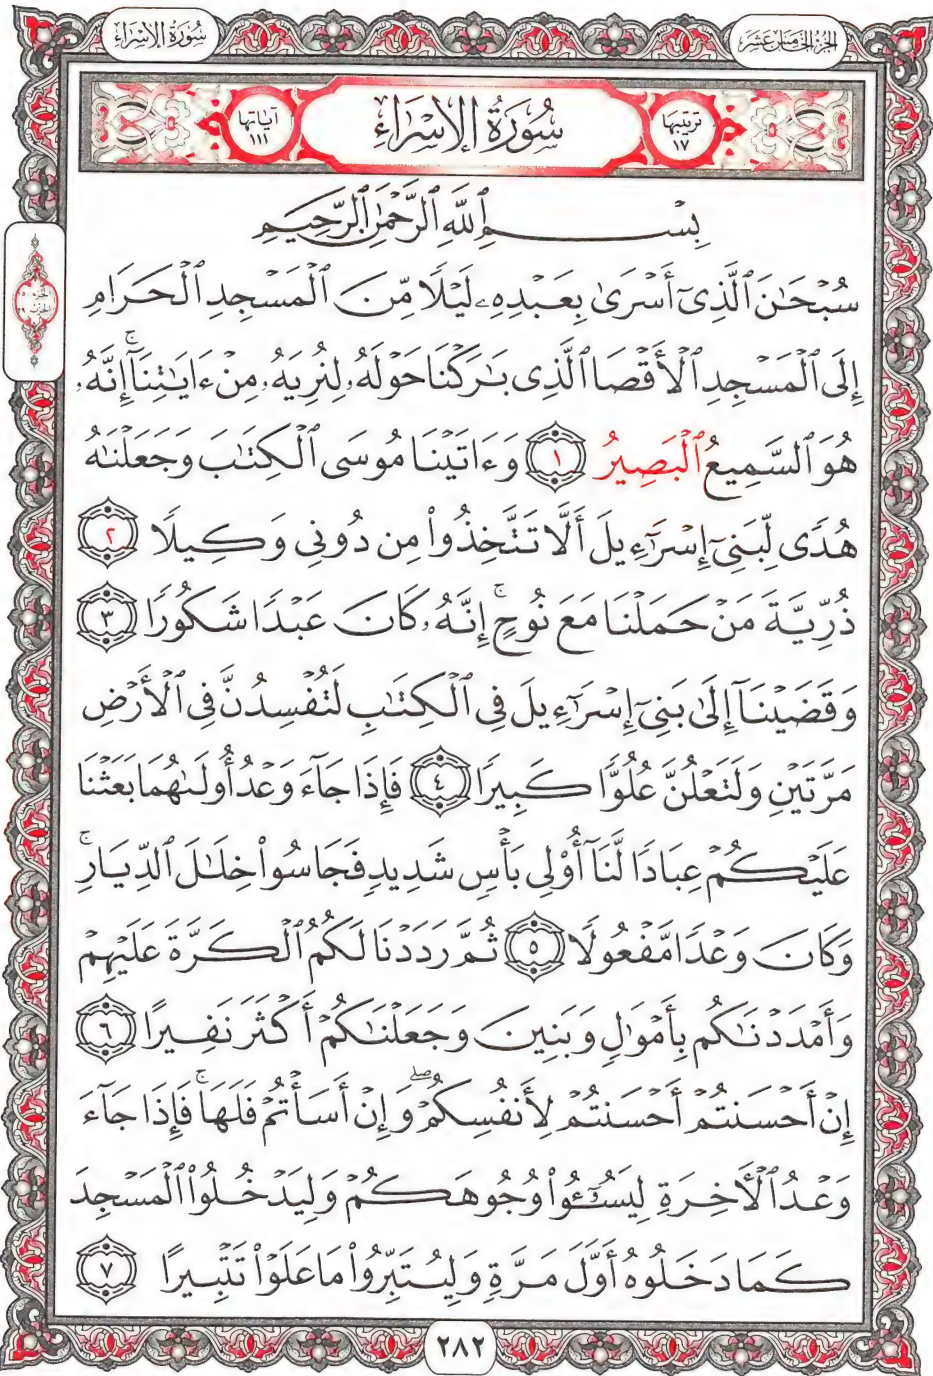 الجزء الخامس عشر
سُورَةُ الإِسْرَاء
ترتيبها
١٧
سُورَةُ الإِسْرَاءِ
آياتها
١١١
بِسْمِ ٱللَّهِ ٱلرَّحْمَٰنِ ٱلرَّحِيمِ
سُبْحَٰنَ ٱلَّذِىٓ أَسْرَىٰ بِعَبْدِهِۦ لَيْلًا مِّنَ ٱلْمَسْجِدِ ٱلْحَرَامِ
إِلَى ٱلْمَسْجِدِ ٱلْأَقْصَا ٱلَّذِى بَٰرَكْنَا حَوْلَهُۥ لِنُرِيَهُۥ مِنْ ءَايَٰتِنَآ ۚ إِنَّهُۥ
هُوَ ٱلسَّمِيعُ ٱلْبَصِيرُ ١ وَءَاتَيْنَا مُوسَى ٱلْكِتَٰبَ وَجَعَلْنَٰهُ
هُدًى لِّبَنِىٓ إِسْرَٰٓءِيلَ أَلَّا تَتَّخِذُوا۟ مِن دُونِى وَكِيلًا ٢
ذُرِّيَّةَ مَنْ حَمَلْنَا مَعَ نُوحٍ ۚ إِنَّهُۥ كَانَ عَبْدًا شَكُورًا ٣
وَقَضَيْنَآ إِلَىٰ بَنِىٓ إِسْرَٰٓءِيلَ فِى ٱلْكِتَٰبِ لَتُفْسِدُنَّ فِى ٱلْأَرْضِ
مَرَّتَيْنِ وَلَتَعْلُنَّ عُلُوًّا كَبِيرًا ٤ فَإِذَا جَآءَ وَعْدُ أُولَىٰهُمَا بَعَثْنَا
عَلَيْكُمْ عِبَادًا لَّنَآ أُو۟لِى بَأْسٍ شَدِيدٍ فَجَاسُوا۟ خِلَٰلَ ٱلدِّيَارِ ۚ
وَكَانَ وَعْدًا مَّفْعُولًا ٥ ثُمَّ رَدَدْنَا لَكُمُ ٱلْكَرَّةَ عَلَيْهِمْ
وَأَمْدَدْنَٰكُم بِأَمْوَٰلٍ وَبَنِينَ وَجَعَلْنَٰكُمْ أَكْثَرَ نَفِيرًا ٦
إِنْ أَحْسَنتُمْ أَحْسَنتُمْ لِأَنفُسِكُمْ ۖ وَإِنْ أَسَأْتُمْ فَلَهَا ۚ فَإِذَا جَآءَ
وَعْدُ ٱلْأَخِرَةِ لِيَسُۥٓـُٔوا۟ وُجُوهَكُمْ وَلِيَدْخُلُوا۟ ٱلْمَسْجِدَ
كَمَا دَخَلُوهُ أَوَّلَ مَرَّةٍ وَلِيُتَبِّرُوا۟ مَا عَلَوْا۟ تَتْبِيرًا ٧
٢٨٢